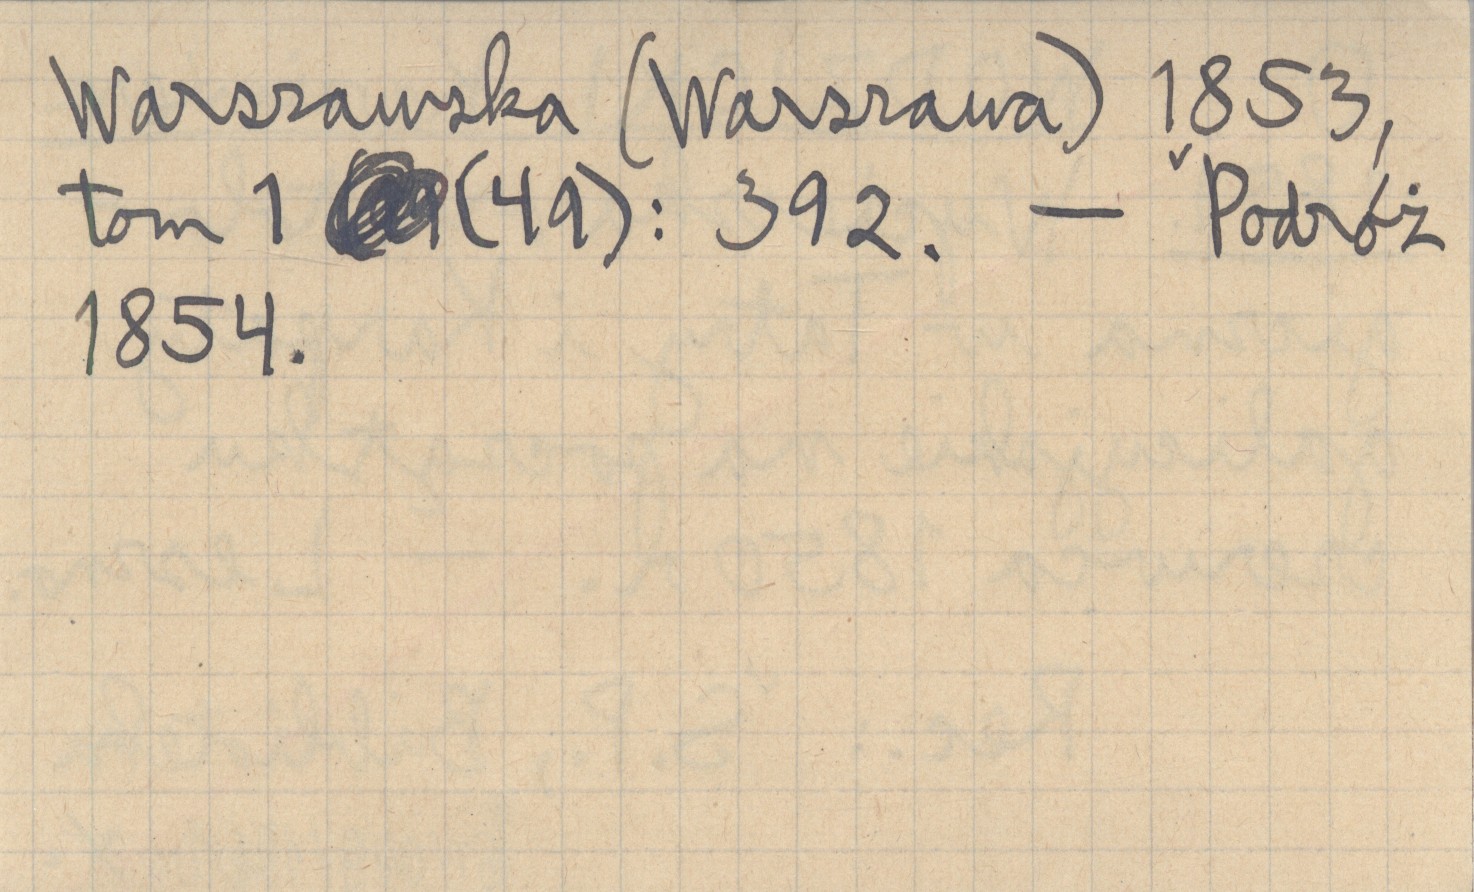 Warszawska (Warszawa) 1853,
tom 1 (49): 392. — Podróż
1854.